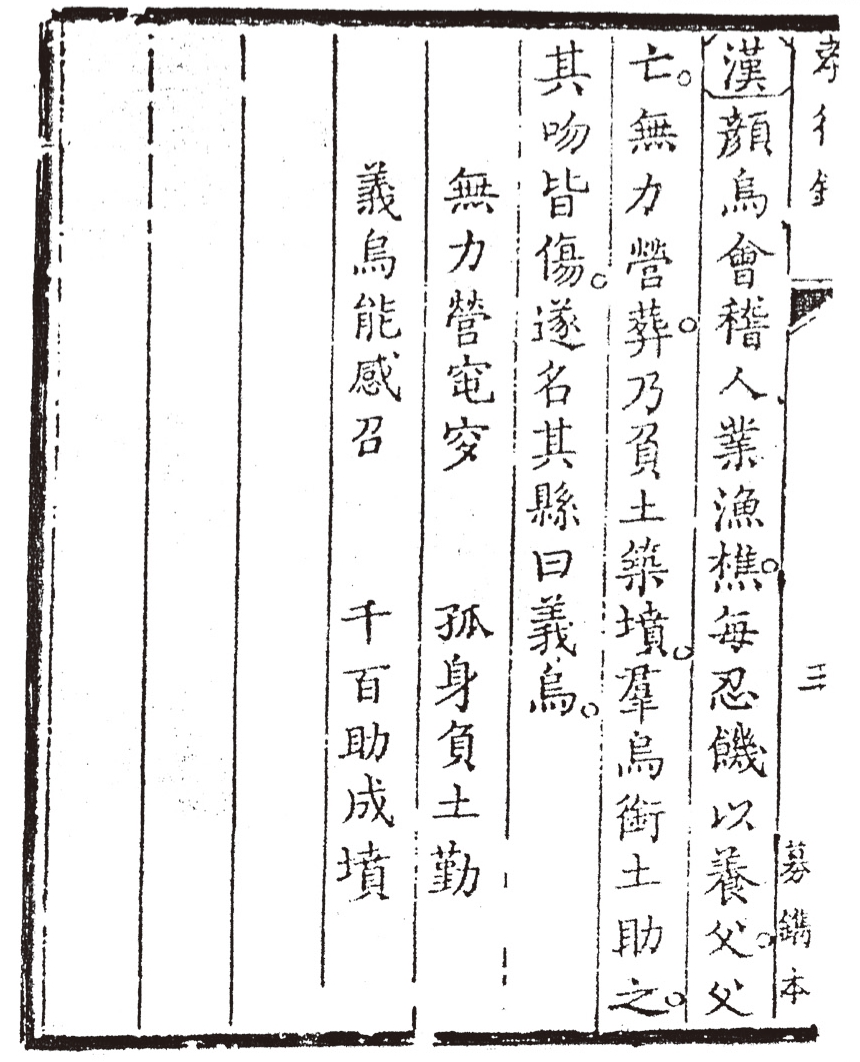 三
募鐫本
漢顏烏會稽人業漁樵。每忍饑以養父。父
亡。無力營葬。乃負土築墳。羣烏銜土助之。
其吻皆傷。遂名其縣曰義烏。
無力營窀穸　孤身負土勤
義烏能感召　千百助成墳